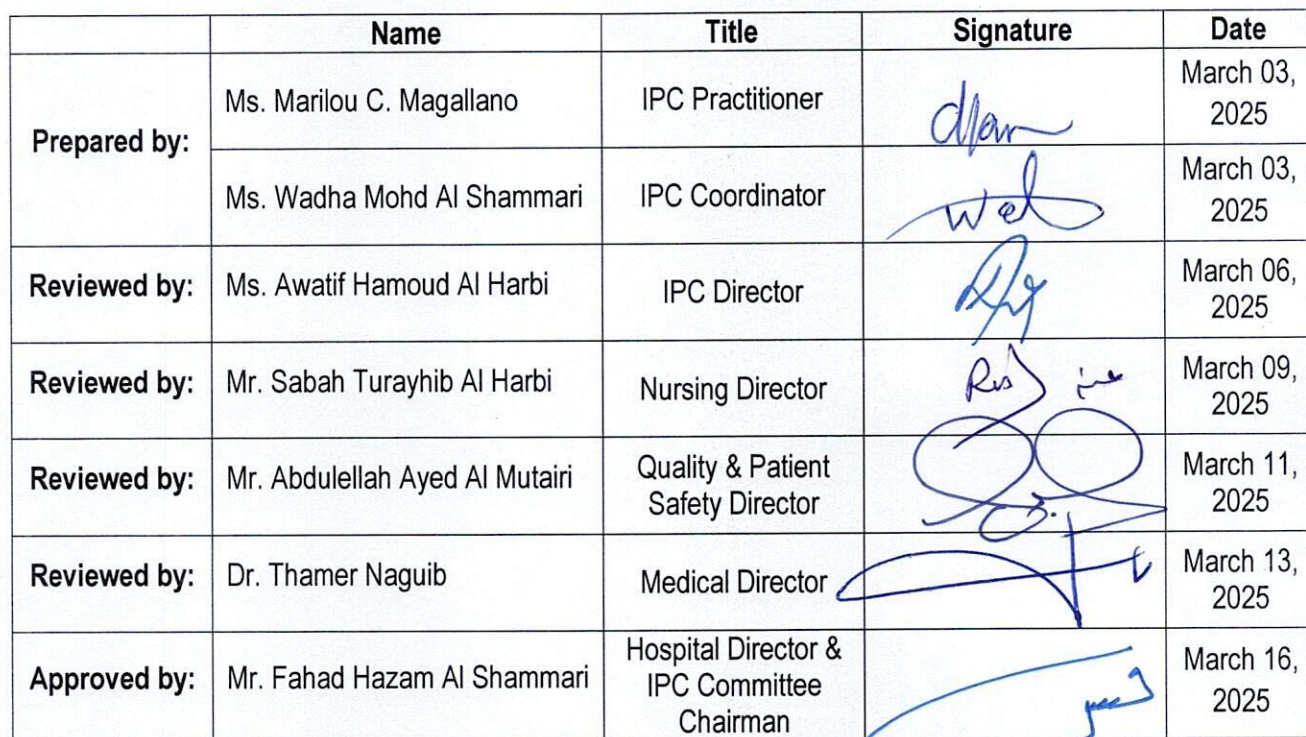 Name Title Signature Date
Prepared by: Ms. Marilou C. Magallano IPC Practitioner March 03, 2025
Ms. Wadha Mohd Al Shammari IPC Coordinator March 03, 2025
Reviewed by: Ms. Awatif Hamoud Al Harbi IPC Director March 06, 2025
Reviewed by: Mr. Sabah Turayhib Al Harbi Nursing Director March 09, 2025
Reviewed by: Mr. Abdulellah Ayed Al Mutairi Quality & Patient Safety Director March 11, 2025
Reviewed by: Dr. Thamer Naguib Medical Director March 13, 2025
Approved by: Mr. Fahad Hazam Al Shammari Hospital Director & IPC Committee Chairman March 16, 2025